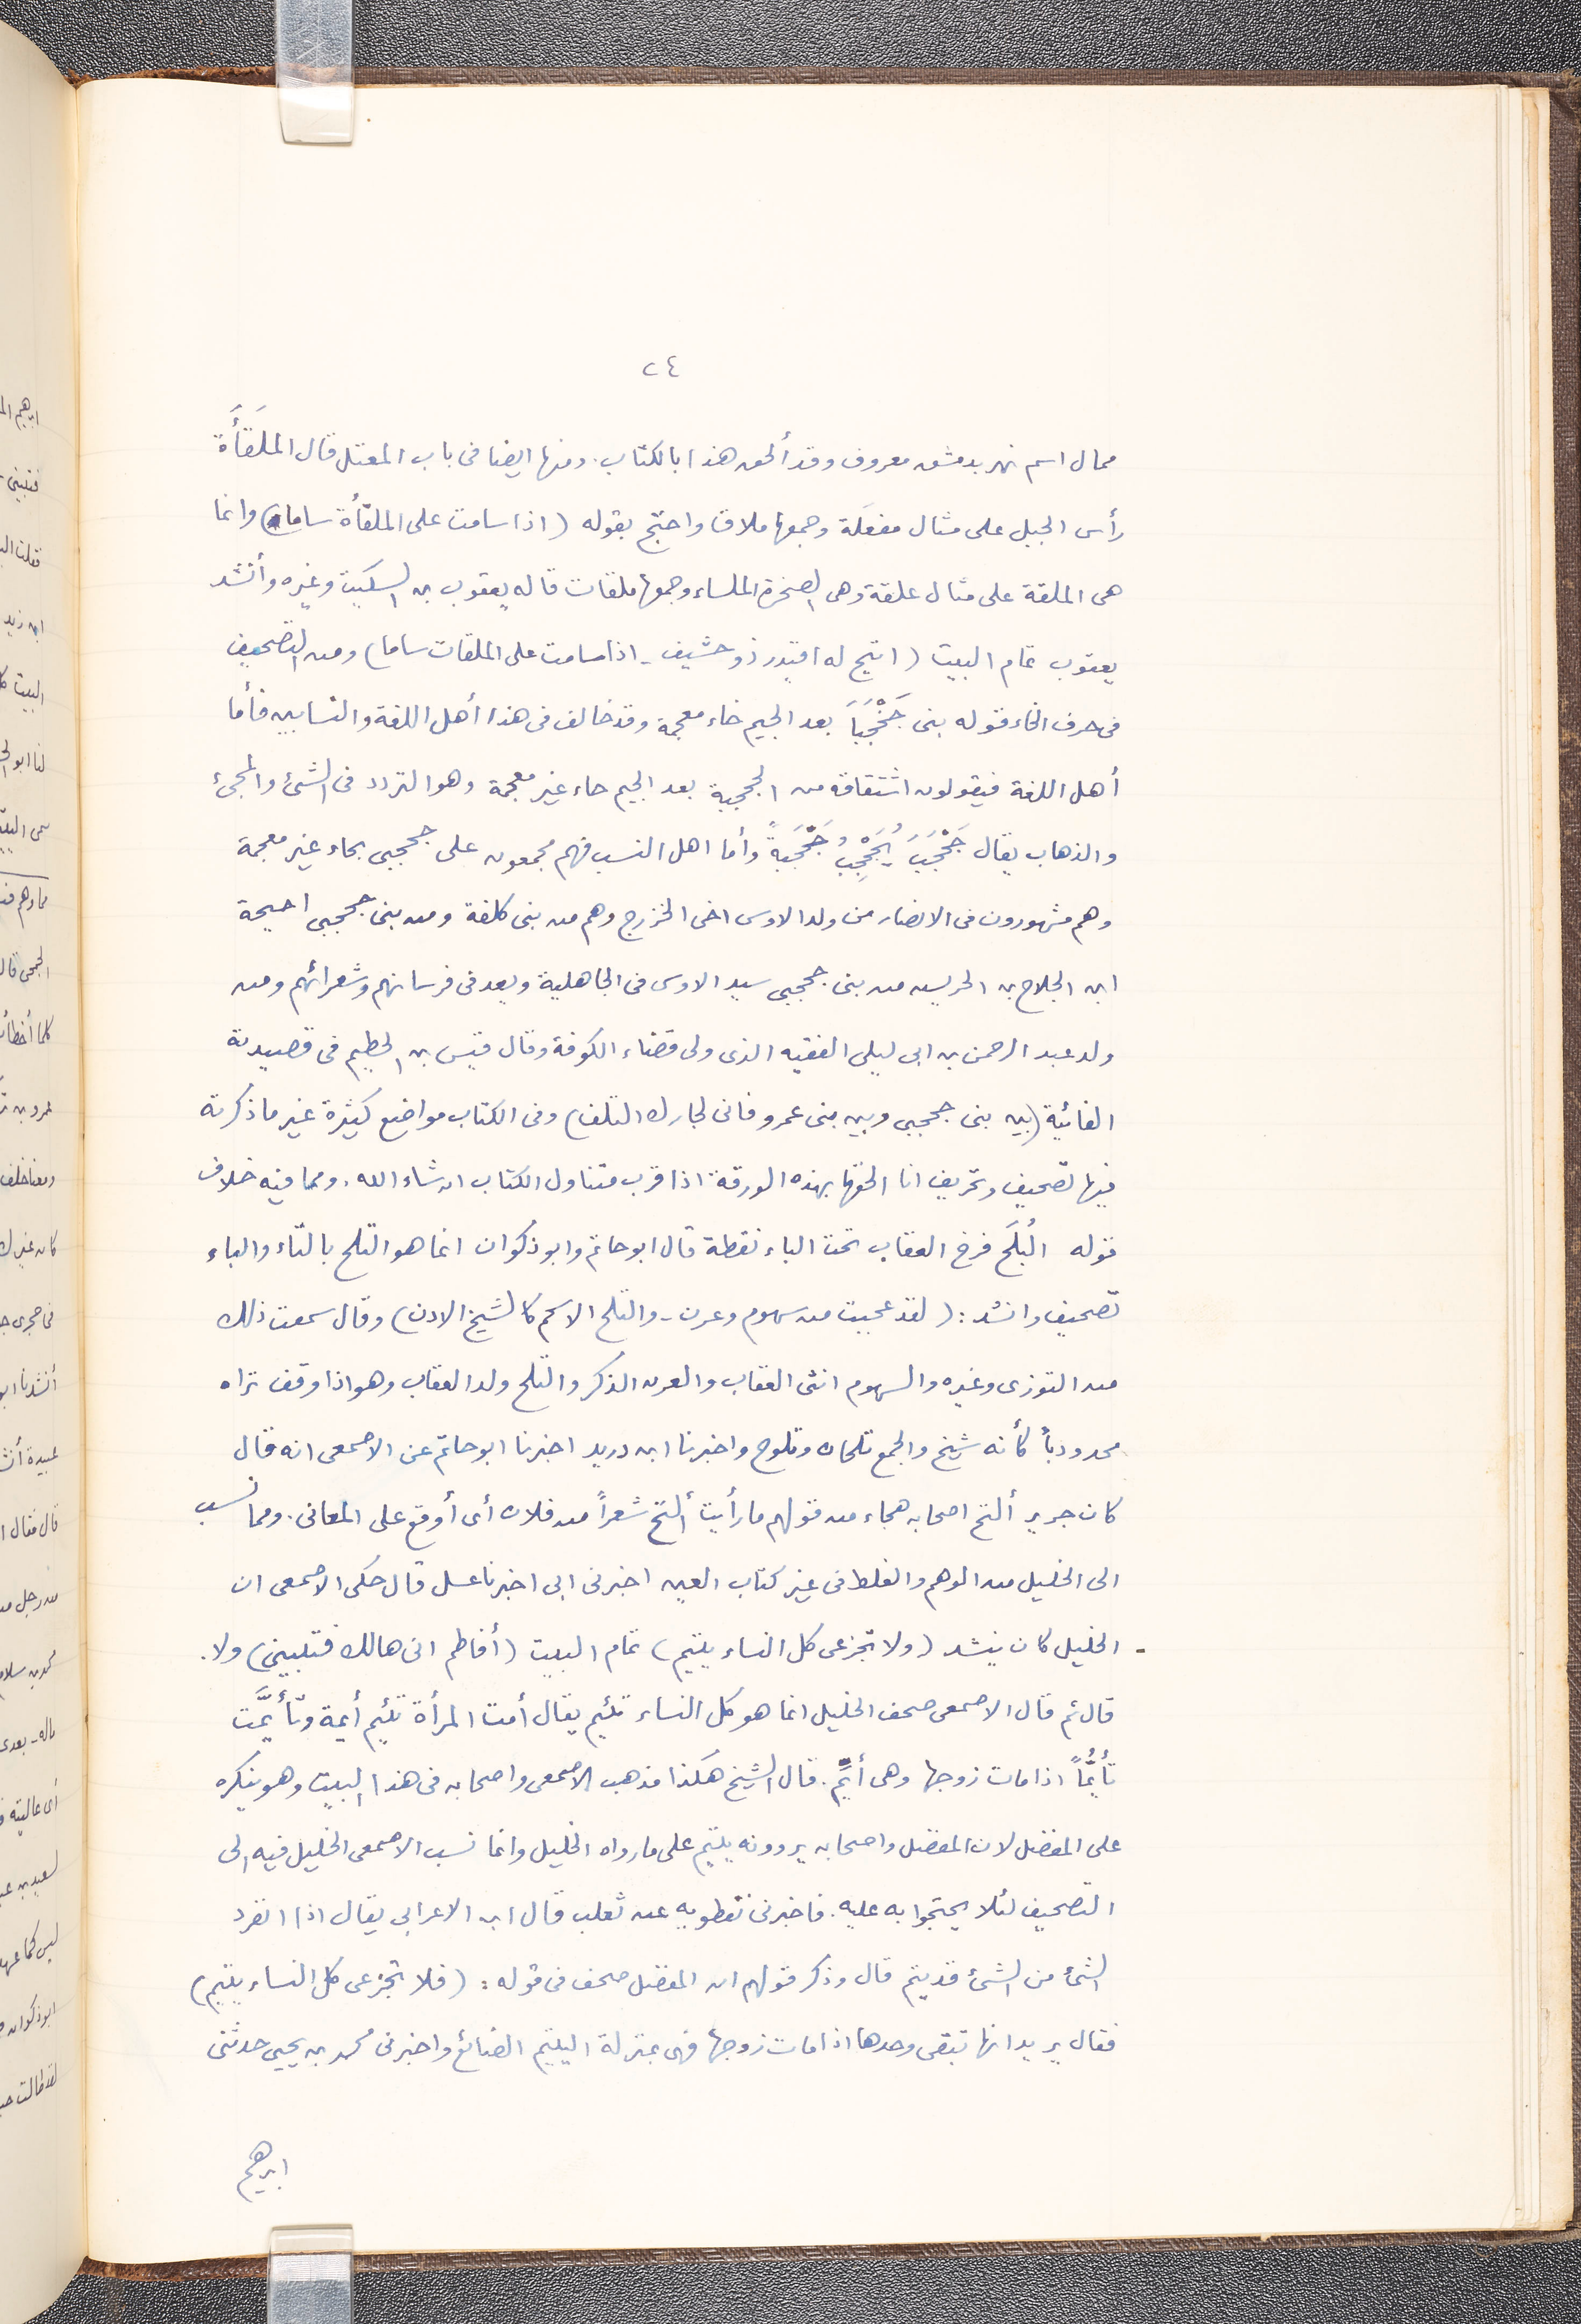 ٢٤
ممال اسم نهر بدمشق معروف وقد ألحق هذا بالكتاب. ومنها ايضا فى باب المعتل قال المَلقَأَة
رأس الجبل على مثال مفعَلة وجمعها ملاق واحتج بقوله (اذا سامت على الملقأة ساما) وانما
هى الملقة على مثال علقة وهى الصخرة الملساء وجمعها ملقات قاله يعقوب بن السكيت وغيره وأنشد
يعقوب تمام البيت (اتيح له اقيدر ذو حشيف - اذا سامت على الملقات ساما) ومن التصحيف
فى حرف الخاء قوله بنى جَخْجَبَا بعد الجيم خاء معجمة وقد خالف فى هذا أهل اللغة والنسابين فأما
أهل اللغة فيقولون اشتقاقه من الجحجبة بعد الجيم حاء غير معجمة وهو التردد فى الشئ والمجئ
والذهاب يقال جَحْجَبَ يُجَحْجِبُ جَحْجَبةً وأما اهل النسب فهم مجمعون على جحجبى بحاء غير معجمة
وهم مشهورون فى الانصار من ولد الاوس اخى الخزرج وهم من بنى كلفة ومن بنى جحجبى احيحة
ابن الجلاح بن الحريس من بنى جحجبى سيد الاوس فى الجاهلية ويعد فى فرسانهم وشعرائهم ومن
ولد عبد الرحمن بن ابى ليلى الفقيه الذى ولى قضاء الكوفة وقال قيس بن الحطيم فى قصيدته
الفائية (بين بنى جحجبى وبين بنى عمرو فانى لجارك التلف) وفى الكتاب مواضع كثيرة غير ما ذكرته
فيها تصحيف وتحريف انا الحقها بهذه الورقة اذا قرب متناول الكتاب ان شاء الله. ومما فيه خلاف
قوله البُلَح فرخ العقاب تحت الباء نقطة قال ابو حاتم وابو ذكوان انما هو التلح بالتاء والباء
تصحيف وانشد: (لقد عجبت من سهوم وعرن - والتلح الاسحم كالشيخ الادن) وقال سمعت ذلك
من التوزى وغيره والسهوم انثى العقاب والعرن الذكر والتلح ولد العقاب وهو اذا وقف تراه
محدودباً كأنه شيخ والجمع تلحان وتلوح واخبرنا ابن دريد اخبرنا ابو حاتم عن الاصمعى انه قال
كان جرير ألتخ اصحابه هجاء من قولهم ما رأيت ألتخ شعراً من فلان أى أوقع على المعانى. ومما نسب
الى الخليل من الوهم والغلط فى غير كتاب العين اخبرنى ابى اخبرنا عسل قال حكى الاصمعى ان
- الخليل كان ينشد (ولا تجزعى كل النساء يتيم) تمام البيت (أفاطم انى هالك فتلبينى) ولا.
قال ثم قال الاصمعى صحف الخليل انما هو كل النساء تئيم يقال أمت المرأة تئيم أيمة وتأيَّمت
تأيُّماً اذا مات زوجها وهى أيّم. قال الشيخ هكذا مذهب الاصمعى واصحابه فى هذا البيت وهو ينكره
على المفضل لان المفضل واصحابه يروونه يتيم على ما رواه الخليل وانما نسب الاصمعى الخليل فيه الى
التصحيف لئلا يحتجوا به عليه. فاخبرنى نفطويه عن ثعلب قال ابن الاعرابى يقال اذا انفرد
الشئ من الشئ قد يتم قال وذكر قولهم ان المفضل صحف فى قوله: (فلا تجزعى كل النساء يتيم)
فقال يريد انها تبقى وحدها اذا مات زوجها فهى بمنزلة اليتيم الضائع واخبرنى محمد بن يحيى حدثنى
ابرهيم